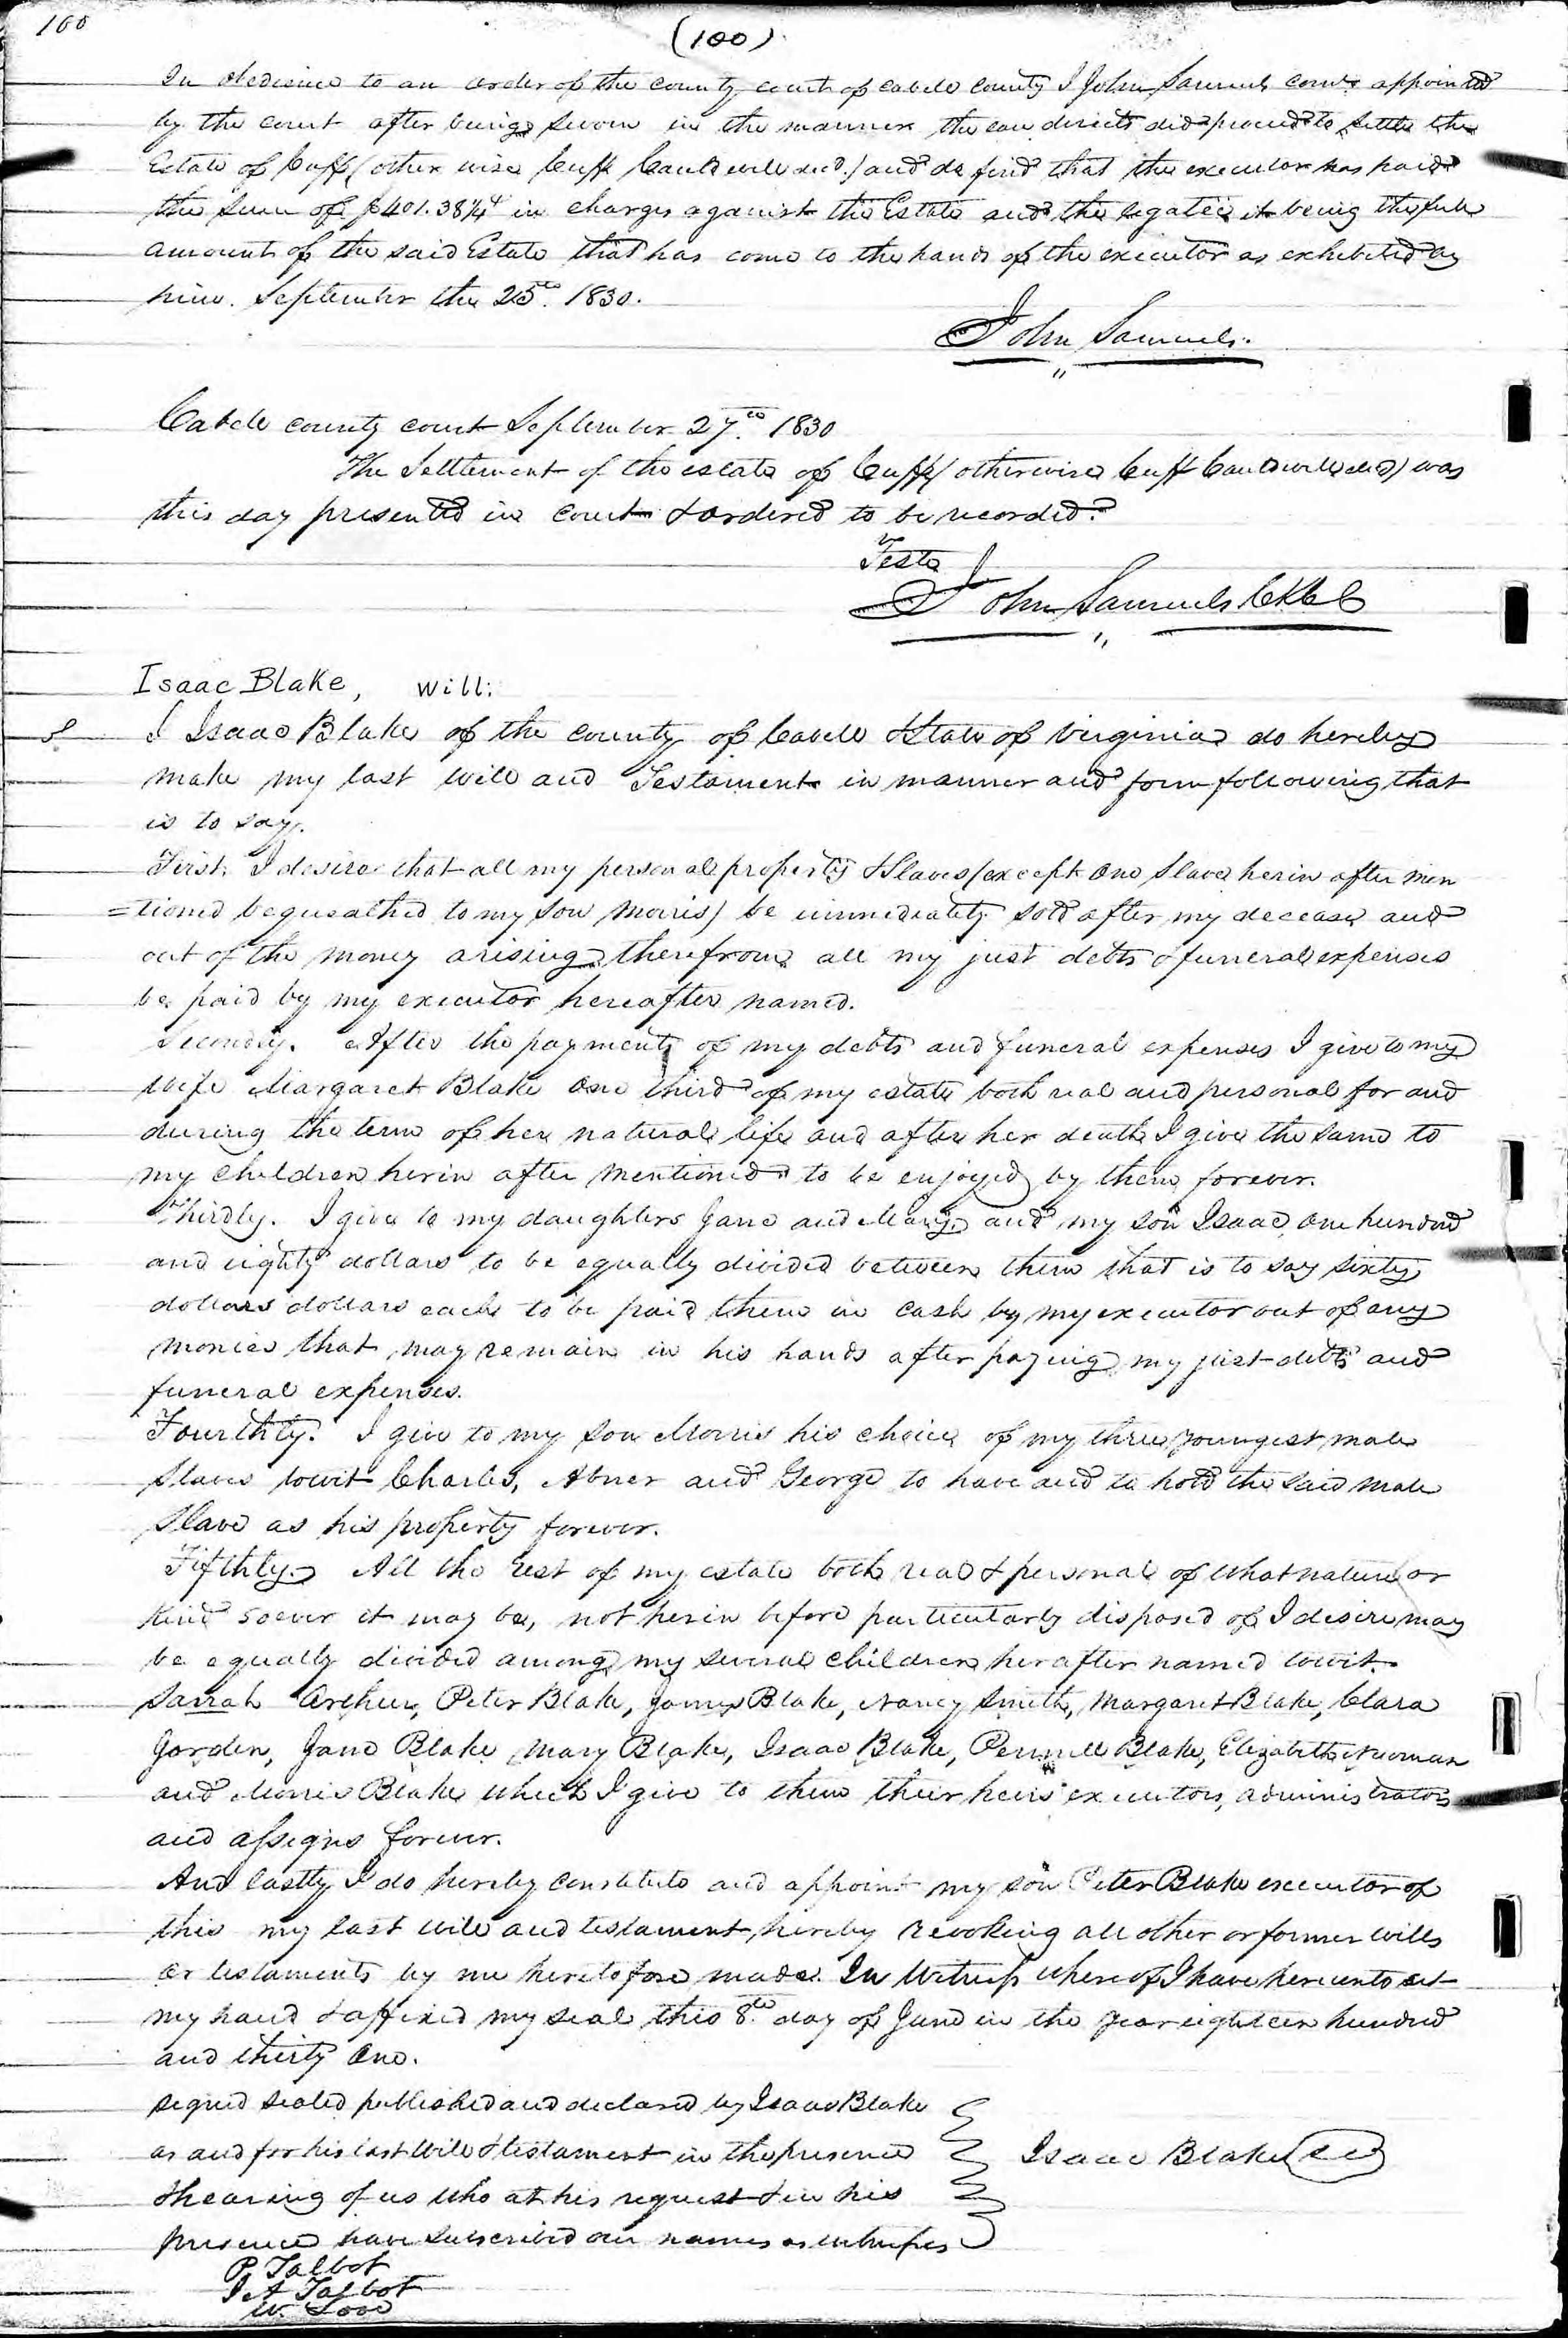 100
(100)
In obedience to an order of the county court of Cabell County I John Samuels comr appointed
by the court after being sworn in the manner the law directs did proceed to settle the
Estate of Cuff (other wise Cuff Cauldwell decd.) and do find that the executor has paid
the sum of $401.38¼ in charges against the Estate and the legatees it being the full
amount of the said Estate that has come to the hands of the executor as exhibited by
him. September the 25th. 1830.
John Samuels.
Cabell county court September 27th. 1830
The Settlement of the estate of Cuff (otherwise Cuff Cauldwell decd) was
this day presented in court & ordered to be recorded.
Teste
John Samuels CKCC
Isaac Blake, Will:
I Isaac Blake of the county of Cabell & State of Virginia do hereby
make my last will and Testament in manner and form following that
is to say.
First. I desire that all my personal property & Slaves (except one slave herin after men
=tioned bequeathed to my son Morris) be immediately sold after my decease and
out of the money arising therefrom all my just debts & funeral expenses
be paid by my executor hereafter named.
Secondly. After the payments of my debts and funeral expenses I give to my
wife Margaret Blake one third of my estate both real and personal for and
during the term of her natural life and after her death I give the same to
my children herin after mentioned to be enjoyed by them forever.
Thirdly. I give to my daughters Jane and Mary and my son Isaac one hundred
and eighty dollars to be equally divided between them that is to say sixty
dollars dollars each to be paid them in cash by my executor out of any
monies that may remain in his hands after paying my just debts and
funeral expenses.
Fourthly. I give to my son Morris his choice of my three youngest male
slaves towit Charles, Abner and George to have and to hold the said male
slave as his property forever.
Fifthly. All the rest of my estate both real & personal of what nature or
kind soever it may be, not herin before particularly disposed of I desire may
be equally divided among my several children herafter named towit.
Sarrah Arthur, Peter Blake, James Blake, Nancy Smith, Margaret Blake, Clara
Gorden, Jane Blake Mary Blake, Isaac Blake, Pennell Blake, Elizabeth Newman
and Morris Blake which I give to them their heirs executors, administrators
and assigns forever.
And lastly I do hereby constitute and appoint my son Peter Blake executor of
this my last will and testament, hereby revoking all other or former wills
or testaments by me heretofore made. In Witness whereof I have hereunto set
my hand & affixed my seal this 8th. day of June in the year eighteen hundred
and thirty one.
signed sealed published and declared by Isaac Blake
as and for his last will & testament in the presence
& hearing of us who at his request & in his
presence have subscribed our names as witnesses
Isaac Blake
P. Talbot
J A Talbot
W. Love